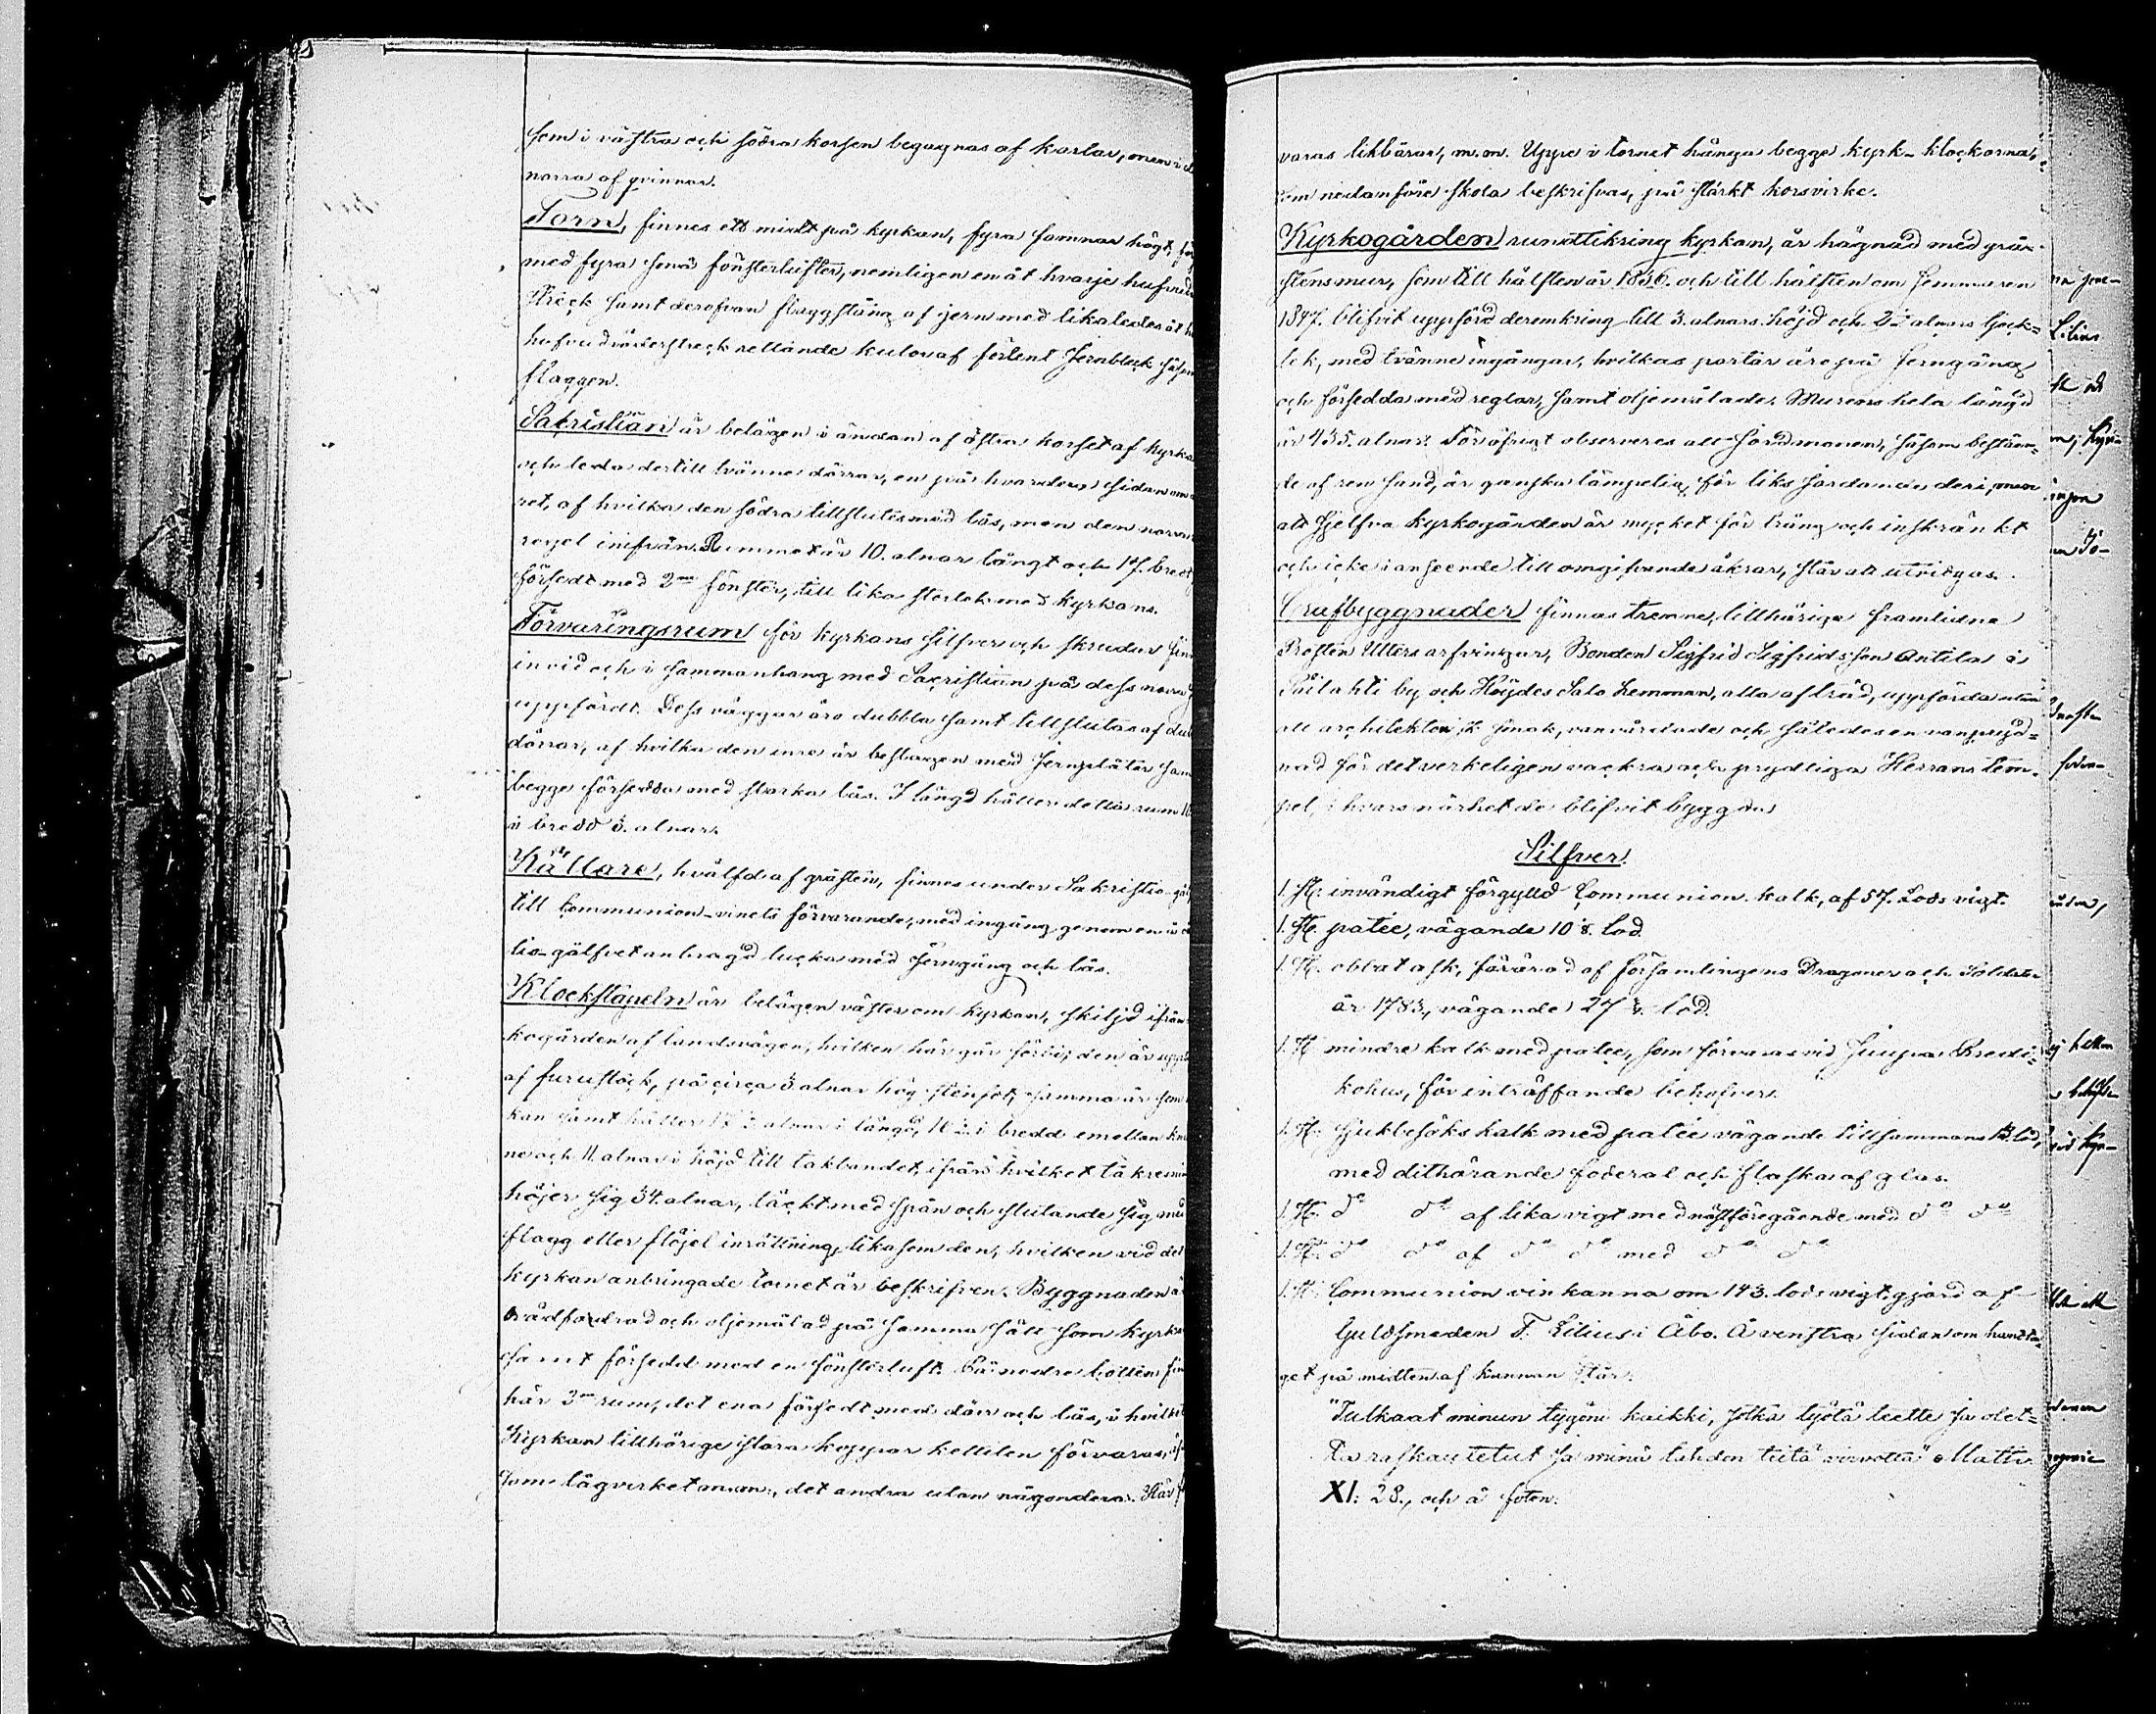 som i västra och södra korsen begagnas af karlar, men i
norra af qvinnor.
Torn, finnes ett midt på kyrkan, fyra famnar högt,
med fyra små fönsterlufter, nemligen en åt hvarje hufvud
streck samt derofvan flaggstång af jern med likaledes åt
hufvudväderstreck ställande kulor af förtent Jernbleck såsom
flaggen.
Sacristian är belägen i ändan af östra korset af kyrkan
och leda dertill tvänne dörrar, en på hvardera sidan om
ret, af hvilka den södra tillslutes med lås, men den norra
regel inifrån. Rummet är 10. alnar långt och 17. bredt
försedt med 2ne fönster, till lika storlek med kyrkans.
Förvaringsrum för kyrkans silfver och skrudar
invid och i sammanhang med Sacristian på dess norra
uppfördt. Dess väggar äro dubbla samt tillslutas af
dörrar, af hvilka den inre är beslagen med Jernplåtar
begge försedda med starka lås. I längd håller detta rum
i bredd 3. alnar.
Källare, hvälfd af gråsten, finnes under Sakristio-
till Communion-vinets förvarande, med ingång genom en i
tio-gålfvet anbragd lucka med Jerngång och lås.
Klockstapeln är belägen väster om kyrkan, skiljd ifrån
kogården af landsvägen, hvilken här går förbi; den är
af furustock, på circa 3 alnar hög stenfot, samma är som
kan samt håller 17 ½ alnar i längd, 16 ½ i bredd emellan
ne och 11. alnar i höjd till takbandet, ifrån hvilket
höjer sig 34. alnar, täckt med spån och slutande sig
flagg eller flöjel inrättning, lika som den, hvilken vid det
kyrkan anbringade tornet är beskrifven. Byggnaden
brädfodrad och oljemålad på samma sätt som kyrkan
samt försedd med en fönsterluft. På nedre botten
här 2ne rum, det ena försedt med dörr och lås, i hvilket
Kyrkan tillhörige stora koppar kettilen förvaras,
some lågvirket m.m., det andra utan någondera. Här
varas likbårar, m.m. Uppe i tornet hänga begge kyrk-klockorna,
som nedanföre skola beskrifvas, på starkt korsvirke.
Kyrkogården rundtikring kyrkan, är hägnad med grå-
stensmur, som till hälften år 1836. och till hälften om sommaren
1847. blifvit uppförd deromkring till 3. alnars höjd och 2½ alnars tjock=
lek, med tvänne ingångar, hvilkas portar äro på Jerngång
och försedda med reglar, samt oljemålade. Murens hela längd
är 435. alnar. För öfrigt observeres att jordmonen, såsom beståen=
de af ren sand, är ganska lämpelig för liks jordande deri, men
att sjelfva kyrkogården är mycket för trång och inskränkt
och icke i anseende till omgifvande åkrar, står att utvidgas.
Grafbyggnader finnas trenne, tillhörige framlidne
Prosten Utters arfvingar, Bonden Sigfrid Sigfridsson Antila i
Säilahti by och Höijdes Salo hemman, alla af träd, uppförda utan
all architektonisk smak, vanvårdade och således en vanpryd=
nad för det verkeligen vackra och prydliga Herrans tem-
pel, i hvars närhet de blifvit byggda.
Silfver.
1. St. invändigt förgylld Communion kalk, af 57. Lods vigt.
1. St. paten, vägande 10⅞. Lod.
1. St. oblatask, förärad af församlingens Dragoner och Soldater
år 1783., vägande 27 ¾. lod.
1. St mindre kalk med paten, som förvaras vid Juupa Predi=
kohus, för inträffande behofver.
1. St. Sjukbesöks kalk med paten vägande tillsammans 13. lod,
med dithörande foderal och flaska af glas.
1. St. do do af lika vigt med nästföregående med do do
1. St. do do af do do med do do
1. St. Communion vin kanna om 143. lods vigt, gjord af
Guldsmeden F. Lilius i Åbo. Å venstra sidan om handta-
get på midten af kannan står:
"Tulkaat minun tygöni kaikki, jotka työtä teette ja olet=
ta raskautetut ja minä tahdon teitä virvottaa" Matth.
XI: 28., och å foten: